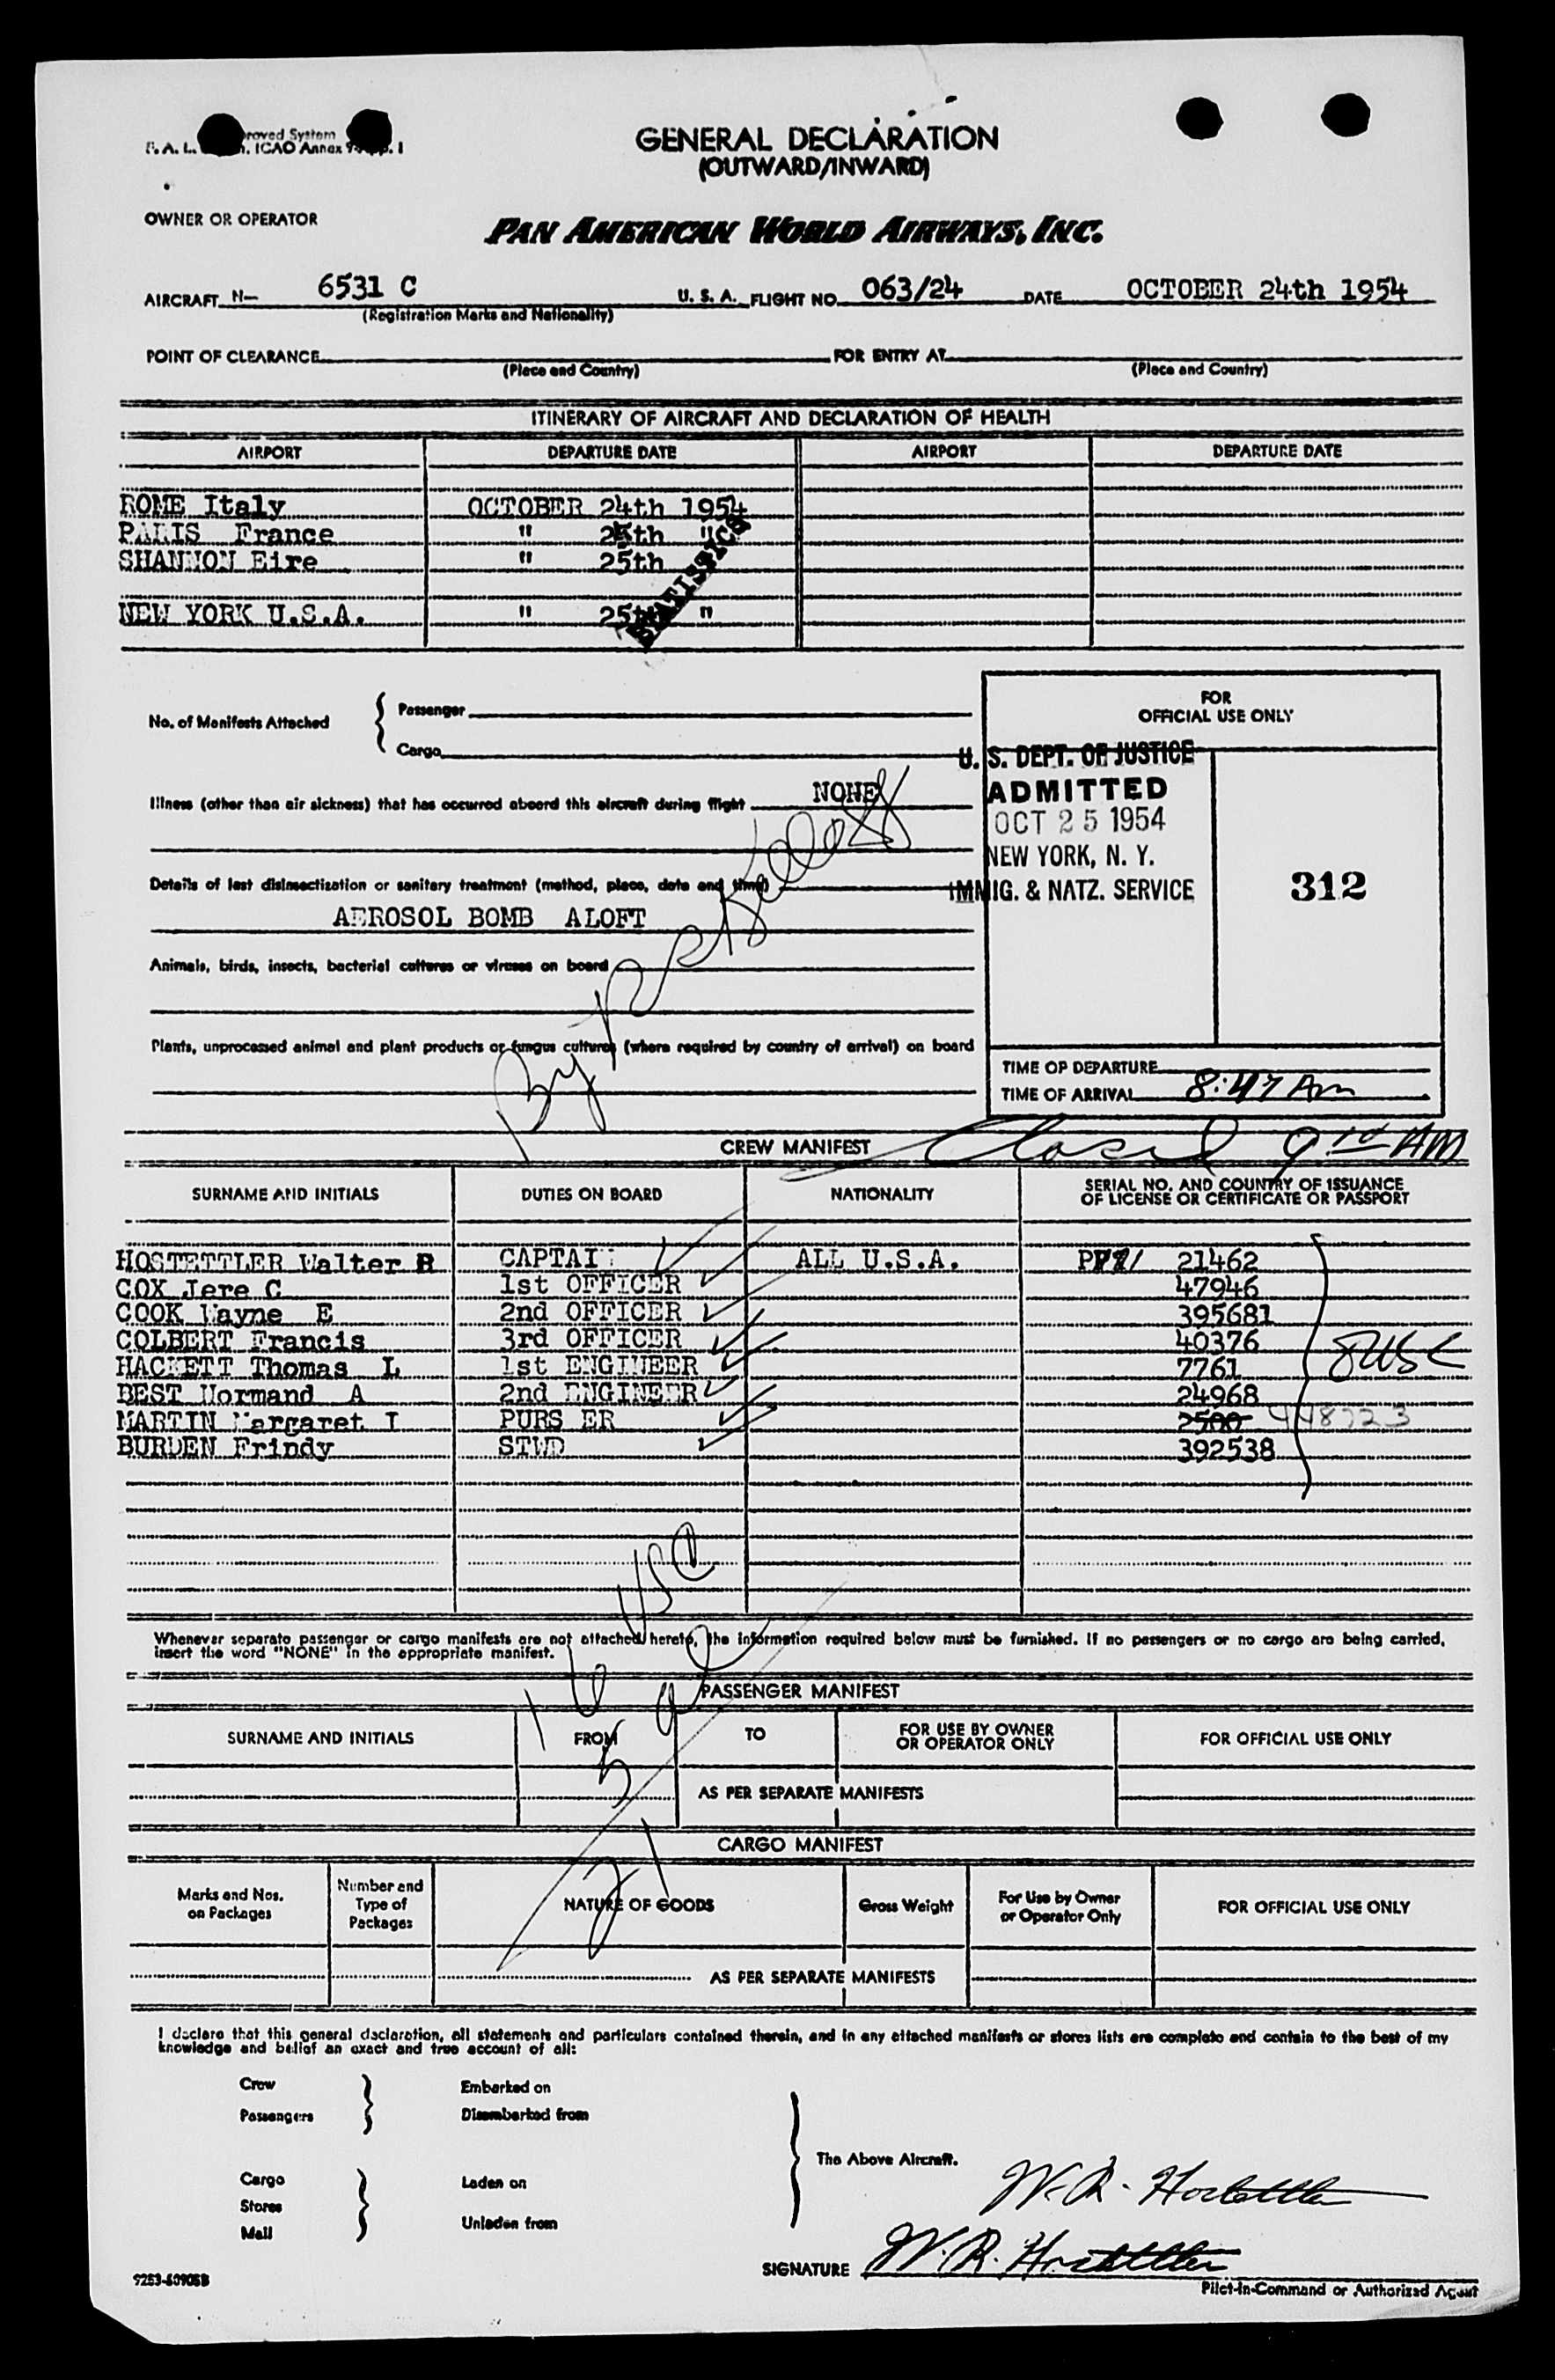 roved System
F. A. L. ICAO Annex 9
GENERAL DECLARATION
(OUTWARD/INWARD)
OWNER OR OPERATOR
PAN AMERICAN WORLD AIRWAYS, INC.
AIRCRAFT N- 6531 C U. S. A. FLIGHT NO. 063/24 DATE OCTOBER 24th 1954
(Registration Marks and Nationality)
POINT OF CLEARANCE FOR ENTRY AT
(Place and Country) (Place and Country)
ITINERARY OF AIRCRAFT AND DECLARATION OF HEALTH
AIRPORT DEPARTURE DATE AIRPORT DEPARTURE DATE
ROME Italy OCTOBER 24th 1954
PARIS France " 25th "
SHANNON Eire " 25th
NEW YORK U.S.A. " 25th "
STATISTICS
No. of Manifests Attached { Passenger
Cargo
FOR
OFFICIAL USE ONLY
U. S. DEPT. OF JUSTICE
ADMITTED
OCT 25 1954
NEW YORK, N. Y.
IMMIG. & NATZ. SERVICE
312
Illness (other than air sickness) that has occurred aboard this aircraft during flight NONE
Details of last disinsectization or sanitary treatment (method, place, date and time)
AEROSOL BOMB ALOFT
Animals, birds, insects, bacterial cultures or viruses on board
Plants, unprocessed animal and plant products or fungus cultures (where required by country of arrival) on board
By
TIME OF DEPARTURE
TIME OF ARRIVAL 8:47 Am
CREW MANIFEST Closed 9 AM
SURNAME AND INITIALS DUTIES ON BOARD NATIONALITY SERIAL NO. AND COUNTRY OF ISSUANCE
OF LICENSE OR CERTIFICATE OR PASSPORT
HOSTETTLER Walter R CAPTAI ALL U.S.A. 21462
COX Jere C 1st OFFICER 47946
COOK Wayne E 2nd OFFICER 395681
COLBERT Francis 3rd OFFICER 40376
HACKETT Thomas L 1st ENGINEER 7761 8 USC
BEST Normand A 2nd ENGINEER 24968
MARTIN Margaret I PURS ER 2500 448723
BURDEN Frindy STWD 392538
Whenever separate passenger or cargo manifests are not attached hereto, the information required below must be furnished. If no passengers or no cargo are being carried,
insert the word "NONE" in the appropriate manifest.
PASSENGER MANIFEST
SURNAME AND INITIALS FROM TO FOR USE BY OWNER
OR OPERATOR ONLY FOR OFFICIAL USE ONLY
AS PER SEPARATE MANIFESTS
CARGO MANIFEST
Marks and Nos.
on Packages Number and
Type of
Packages NATURE OF GOODS Gross Weight For Use by Owner
or Operator Only FOR OFFICIAL USE ONLY
AS PER SEPARATE MANIFESTS
I declare that this general declaration, all statements and particulars contained therein, and in any attached manifests or stores lists are complete and contain to the best of my
knowledge and belief an exact and true account of all:
Crew Embarked on
Passengers Disembarked from
The Above Aircraft.
Cargo Laden on
Stores
Mail Unladen from
W. R. Hostettler
SIGNATURE W. R. Hostettler
Pilot-in-Command or Authorized Agent
9253-60905B